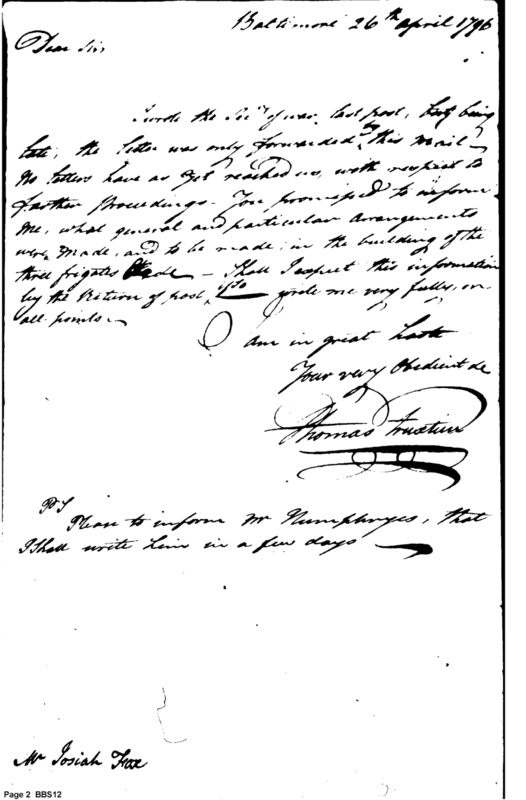 Baltimore 26th april 1796
Dear Sir,
I wrote the Secy of war, last post, but being
late, the letter was only forwarded by this mail —
No letters have as yet reached us, with respect to
farther Proceedings — You promised to inform
me, what general and particular arrangements
were made, and to be made, in the building of the
three frigates — Shall I expect this information
by the Return of post, if so write me very fully, on
all points —
I am in great haste
Your very Obedient
Thomas Truxtun
PS
Please to inform Mr Humphreys, that
I Shall write him in a few days
Mr Josiah Fox
Page 2 BBS12